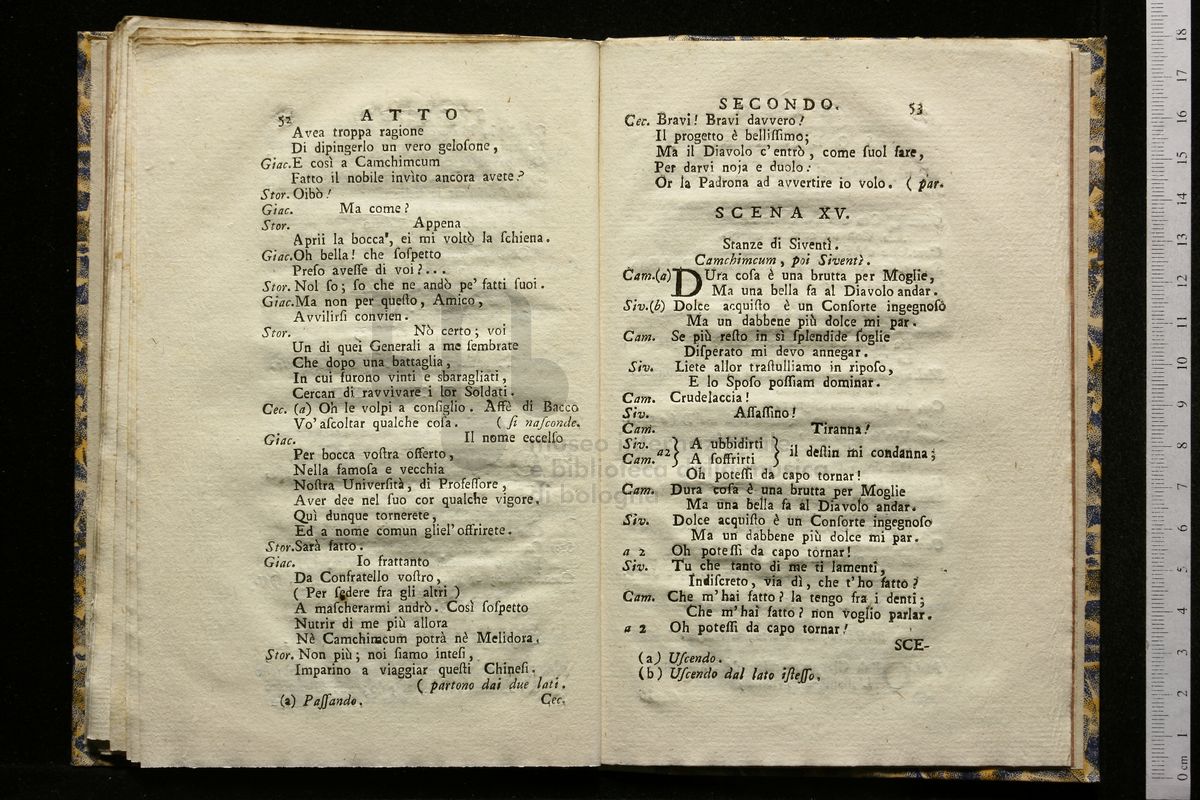 52 ATTO
Avea troppa ragione
Di dipingerlo un vero geloſone,
Giac. E così a Camchimcum
Fatto il nobile invito ancora avete?
Stor. Oibò!
Giac. Ma come?
Stor. Appena
Aprii la bocca, ei mi voltò la ſchiena.
Giac. Oh bella! che ſoſpetto
Preſo aveſſe di voi?...
Stor. Nol ſo; ſo che ne andò pe' fatti ſuoi.
Giac. Ma non per queſto, Amico,
Avvilirſi convien.
Stor. Nò certo; voi
Un di quei Generali a me ſembrate
Che dopo una battaglia,
In cui furono vinti e sbaragliati,
Cercan di ravvivare i lor Soldati.
Cec. (a) Oh le volpi a conſiglio. Affè di Bacco
Vo' aſcoltar qualche coſa. ( ſi naſconde.
Giac. Il nome eccelſo
Per bocca voſtra offerto,
Nella famoſa e vecchia
Noſtra Univerſità, di Profeſſore,
Aver dee nel ſuo cor qualche vigore.
Quì dunque tornerete,
Ed a nome comun gliel' offrirete.
Stor. Sarà fatto.
Giac. Io frattanto
Da Confratello voſtro,
( Per ſedere fra gli altri )
A maſcherarmi andrò. Così ſoſpetto
Nutrir di me più allora
Nè Camchimcum potrà nè Melidora.
Stor. Non più; noi ſiamo inteſi,
Imparino a viaggiar queſti Chineſi.
( partono dai due lati.
(a) Paſſando. Cec.
SECONDO. 53
Cec. Bravi! Bravi davvero!
Il progetto è belliſſimo;
Ma il Diavolo c'entrò, come ſuol fare,
Per darvi noja e duolo:
Or la Padrona ad avvertire io volo. ( par.
SCENA XV.
Stanze di Siventì.
Camchimcum, poi Siventì.
Cam.(a) DUra coſa è una brutta per Moglie,
Ma una bella fa al Diavolo andar.
Siv.(b) Dolce acquiſto è un Conſorte ingegnoſo
Ma un dabbene più dolce mi par.
Cam. Se più reſto in sì ſplendide ſoglie
Diſperato mi devo annegar.
Siv. Liete allor traſtulliamo in ripoſo,
E lo Spoſo poſſiam dominar.
Cam. Crudelaccia!
Siv. Aſſaſſino!
Cam. Tiranna!
Siv. } A ubbidirti }
Cam. a2 } A ſoffrirti } il deſtin mi condanna;
Oh poteſſi da capo tornar!
Cam. Dura coſa è una brutta per Moglie
Ma una bella fa al Diavolo andar.
Siv. Dolce acquiſto è un Conſorte ingegnoſo
Ma un dabbene più dolce mi par.
a 2 Oh poteſſi da capo tornar!
Siv. Tu che tanto di me ti lamenti,
Indiſcreto, via dì, che t'ho fatto?
Cam. Che m'hai fatto? la tengo fra i denti;
Che m'hai fatto? non voglio parlar.
a 2 Oh poteſſi da capo tornar!
SCE-
(a) Uſcendo.
(b) Uſcendo dal lato iſteſſo.
museo
e biblioteca
di bologna
0 cm 1 2 3 4 5 6 7 8 9 10 11 12 13 14 15 16 17 18